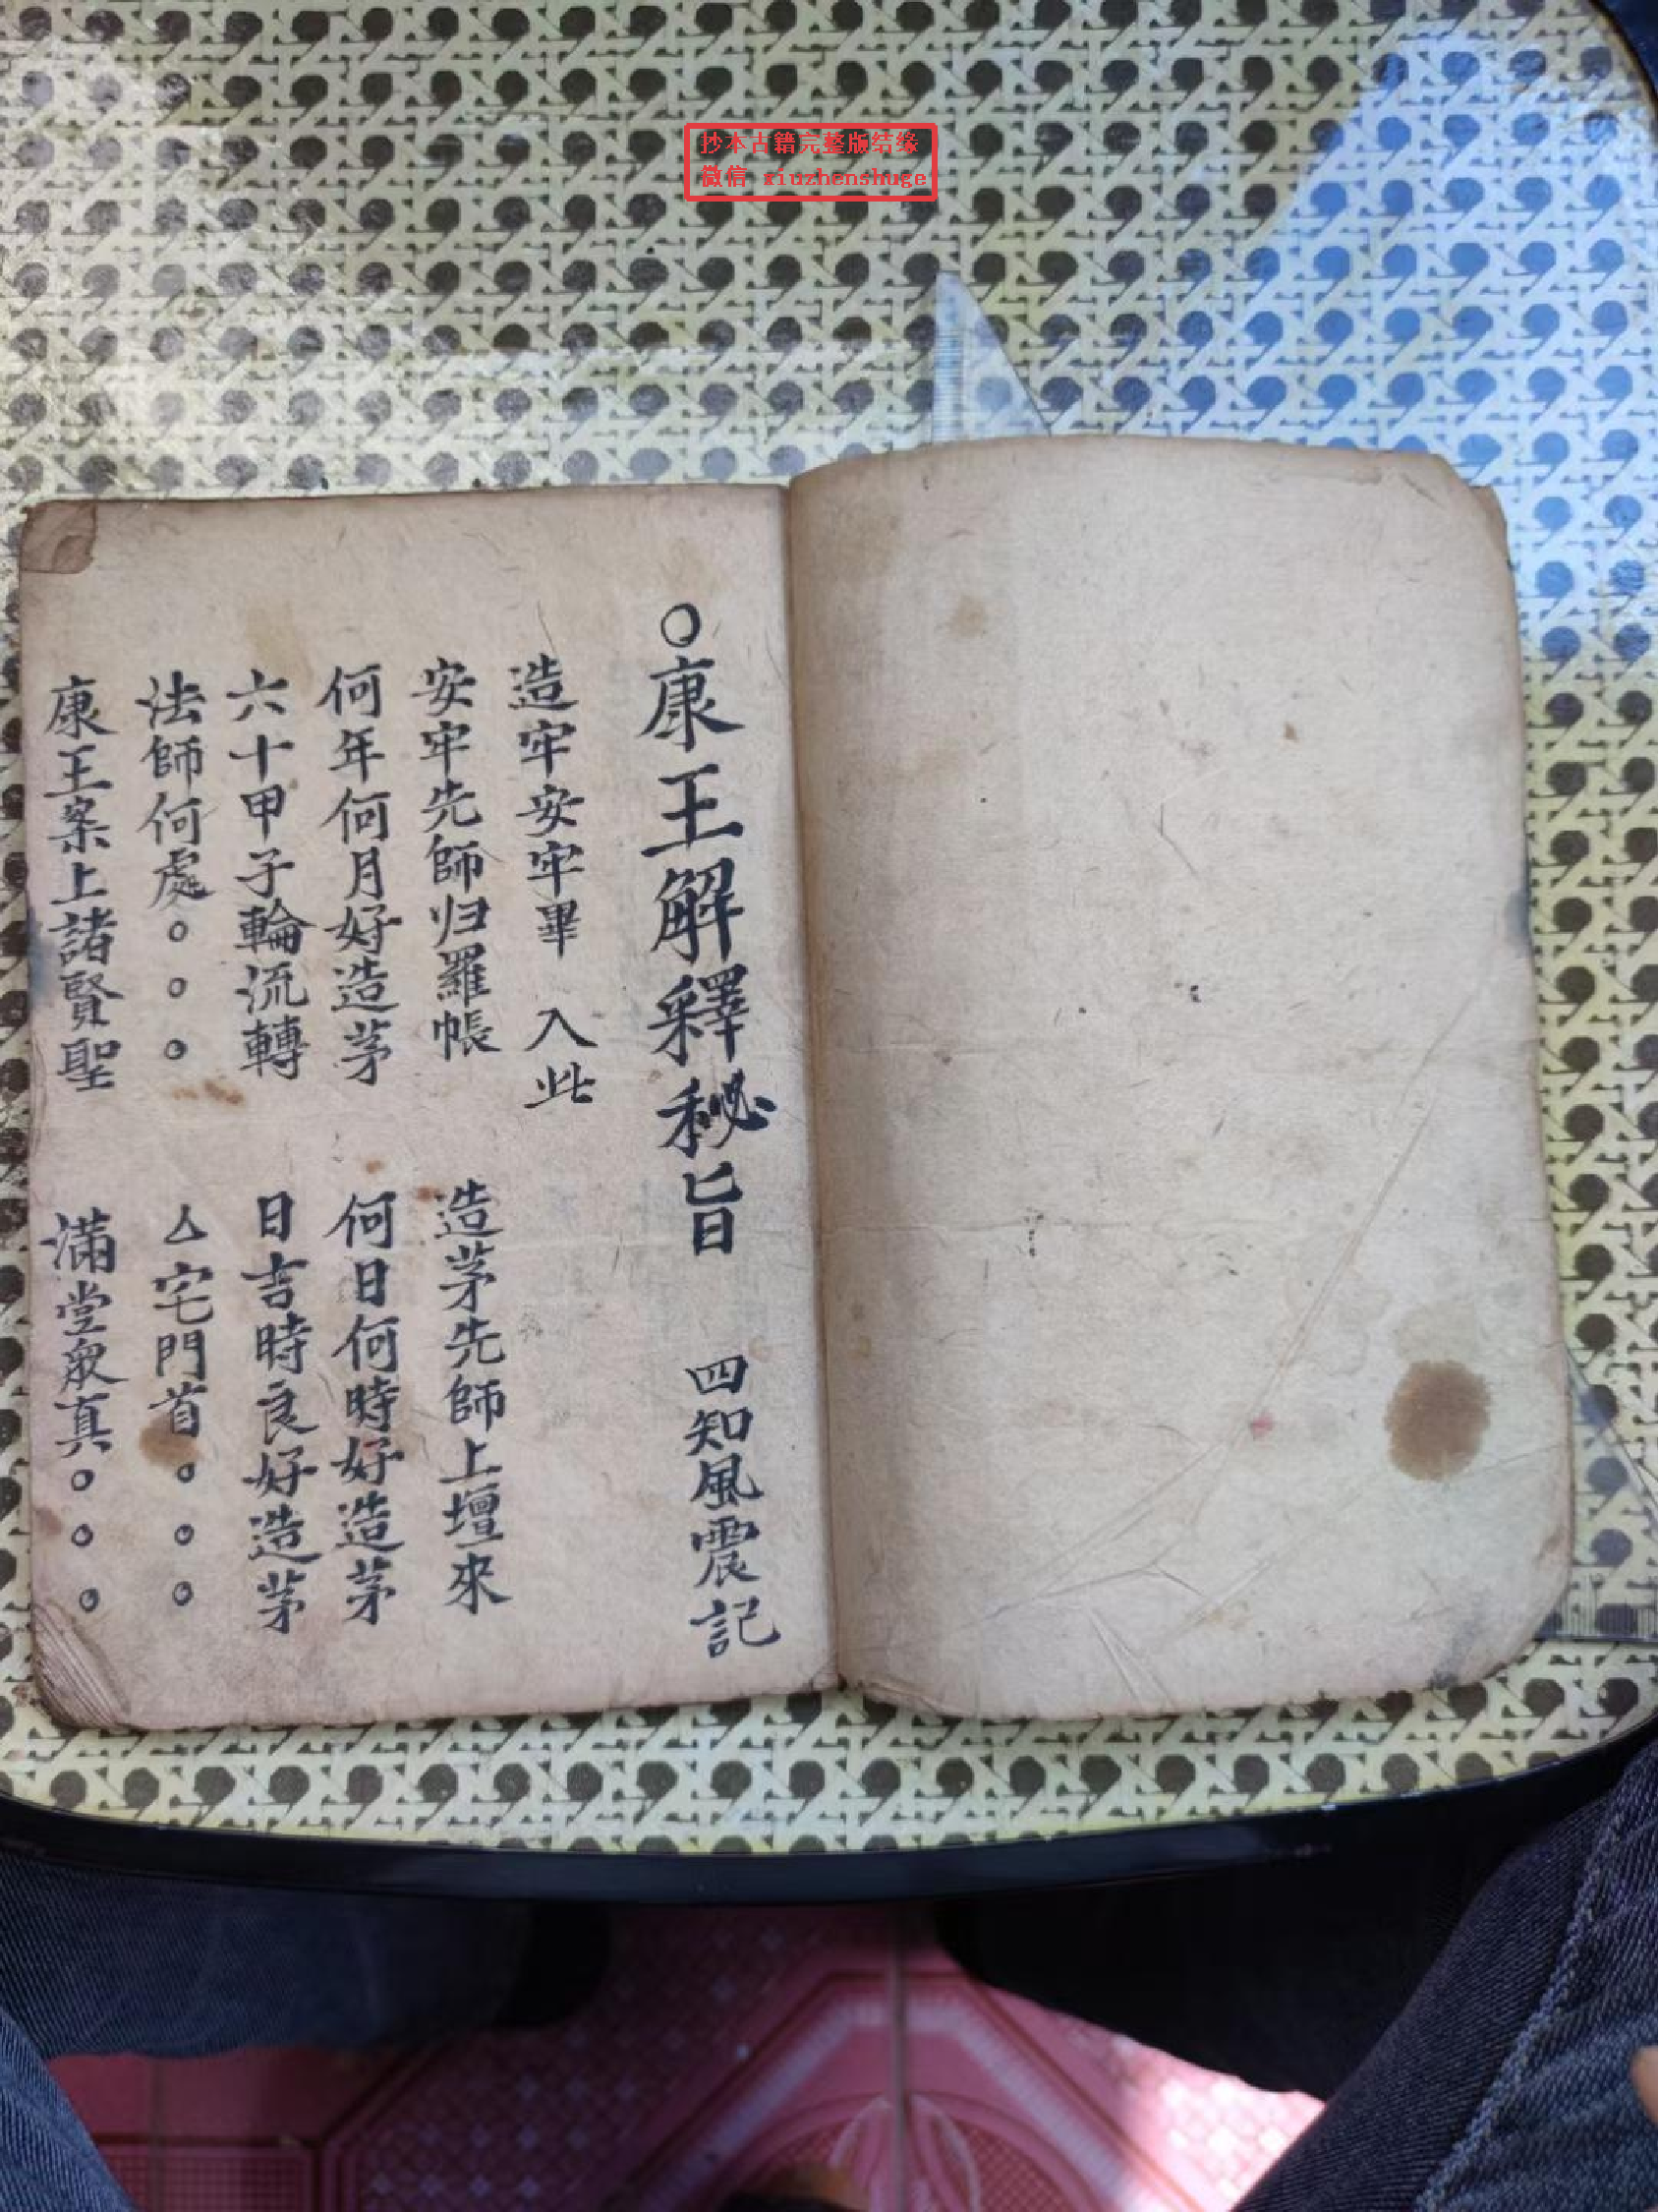 抄本古籍完整版结缘
微信 xiuzhenshuge
○康王解釋秘旨 四知風震記
造牢安牢畢 入此
安牢先師归羅帳 造茅先師上壇來
何年何月好造茅 何日何時好造茅
六十甲子輪流轉 日吉時良好造茅
法師何處○○○ 厶宅門首○○○
康王案上諸賢聖 滿堂眾真○○○